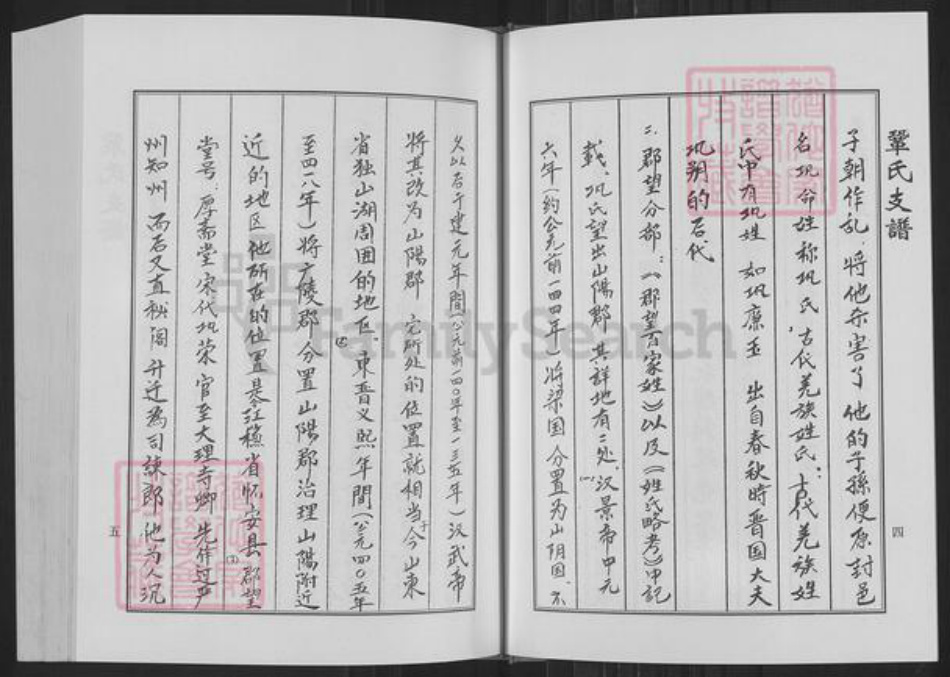 鞏氏支譜
子朝作乱，将他杀害了 他的子孫便原封邑
名巩命姓称巩氏，古代羌族姓氏：古代羌族姓
氏中有巩姓 如巩廉玉 出自春秋時晋国大夫
巩朔的后代
二、郡望分部：《郡望百家姓》以及《姓氏略考》中記
載、巩氏望出山陽郡 其詳地有二处、(一)汉景帝中元
六年（约公元前一四四年）将梁国 分置为山阴国、不
四
久以后于建元年間（公元前一四〇年至一三五年）汉武帝
将其改为山陽郡 它所处的位置就相当于今山東
省独山湖周囲的地区(二)東晋义熙年間（公元四〇五年
至四一八年）将广陵郡分置山陽郡治理山陽附近
近的地区 他所在的位置是 省怀安县(3)郡望
堂号：厚斋堂宋代巩荣 官至大理寺卿 先作过严
州知州 而后又直秘阁 升迁為司諫郎 他为人沉
五
FamilySearch